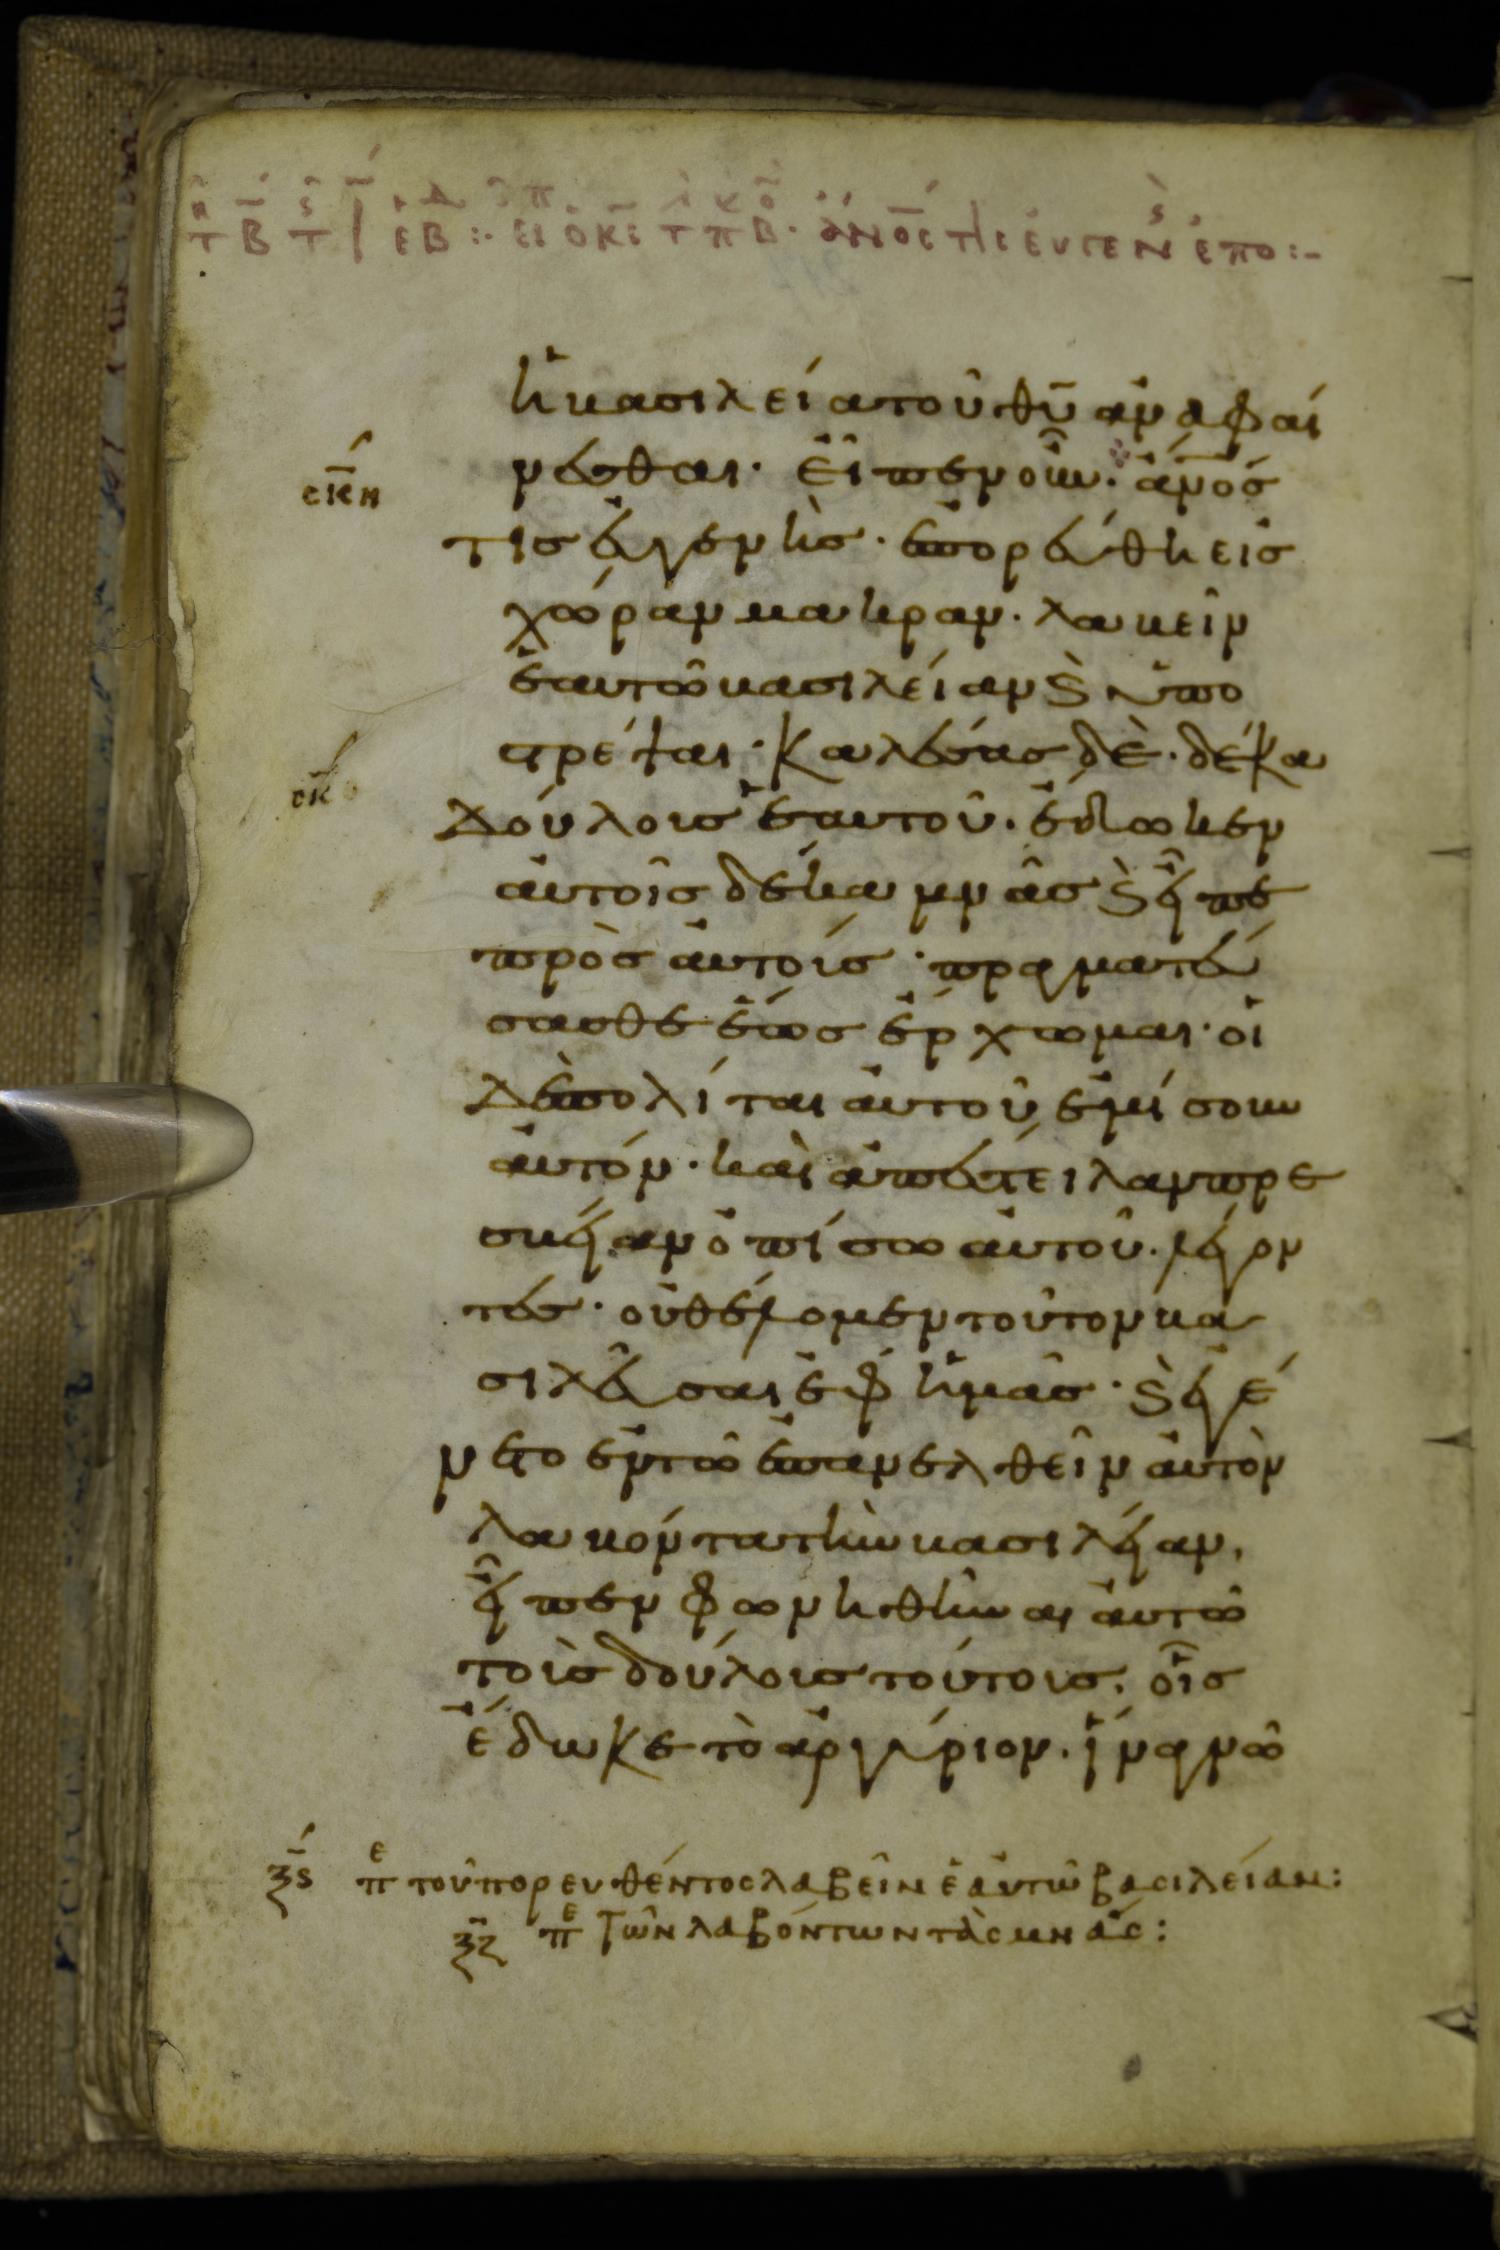 ἡ βασιλεία τοῦ θῦ ἀναφαί
νεσθαι· εἶπεν οὖν· ἄν̅ο̅ς
τις εὐγενὴς· ἐπορεύθη εἰς
χώραν μακραν· λαβεῖν
ἑαυτῶ βασιλείαν ϗ ὑπο
στρέψαι· καλέσας δὲ· δέκα
δούλους ἑαυτοῦ· ἔδωκεν
αὐτοῖς δέκα μνᾶς ϗ εἶπε
πρὸς αὐτούς· πραγματεύ
σασθε ἕως ἔρχωμαι· οἱ
δὲ πολίται αὐτοῦ ἐμίσουν
αὐτόν· καὶ ἀπέστειλαν πρε
σβείαν ὀπίσω αὐτοῦ· λέγον
τες· οὐ θέλομεν τοῦτον βα
σιλεῦσαι ἐφ ἡμᾶς· ϗ ἐγέ
νετο ἐν τῶ ἐπανελθεῖν αὐτὸν
λαβόντα τὴν βασιλείαν,
εἶπεν φωνηθῆναι αὐτῶ
τοὺς δούλους τούτους, οἷς
ἔδωκε τὸ ἀργύριον. ἵνα γνῶ
ξϛ πε τοῦ πορευθέντος λαβεῖν ἑαυτῶ βασιλείαν:
ξζ πε τῶν λαβόντων τὰς μνᾶς: